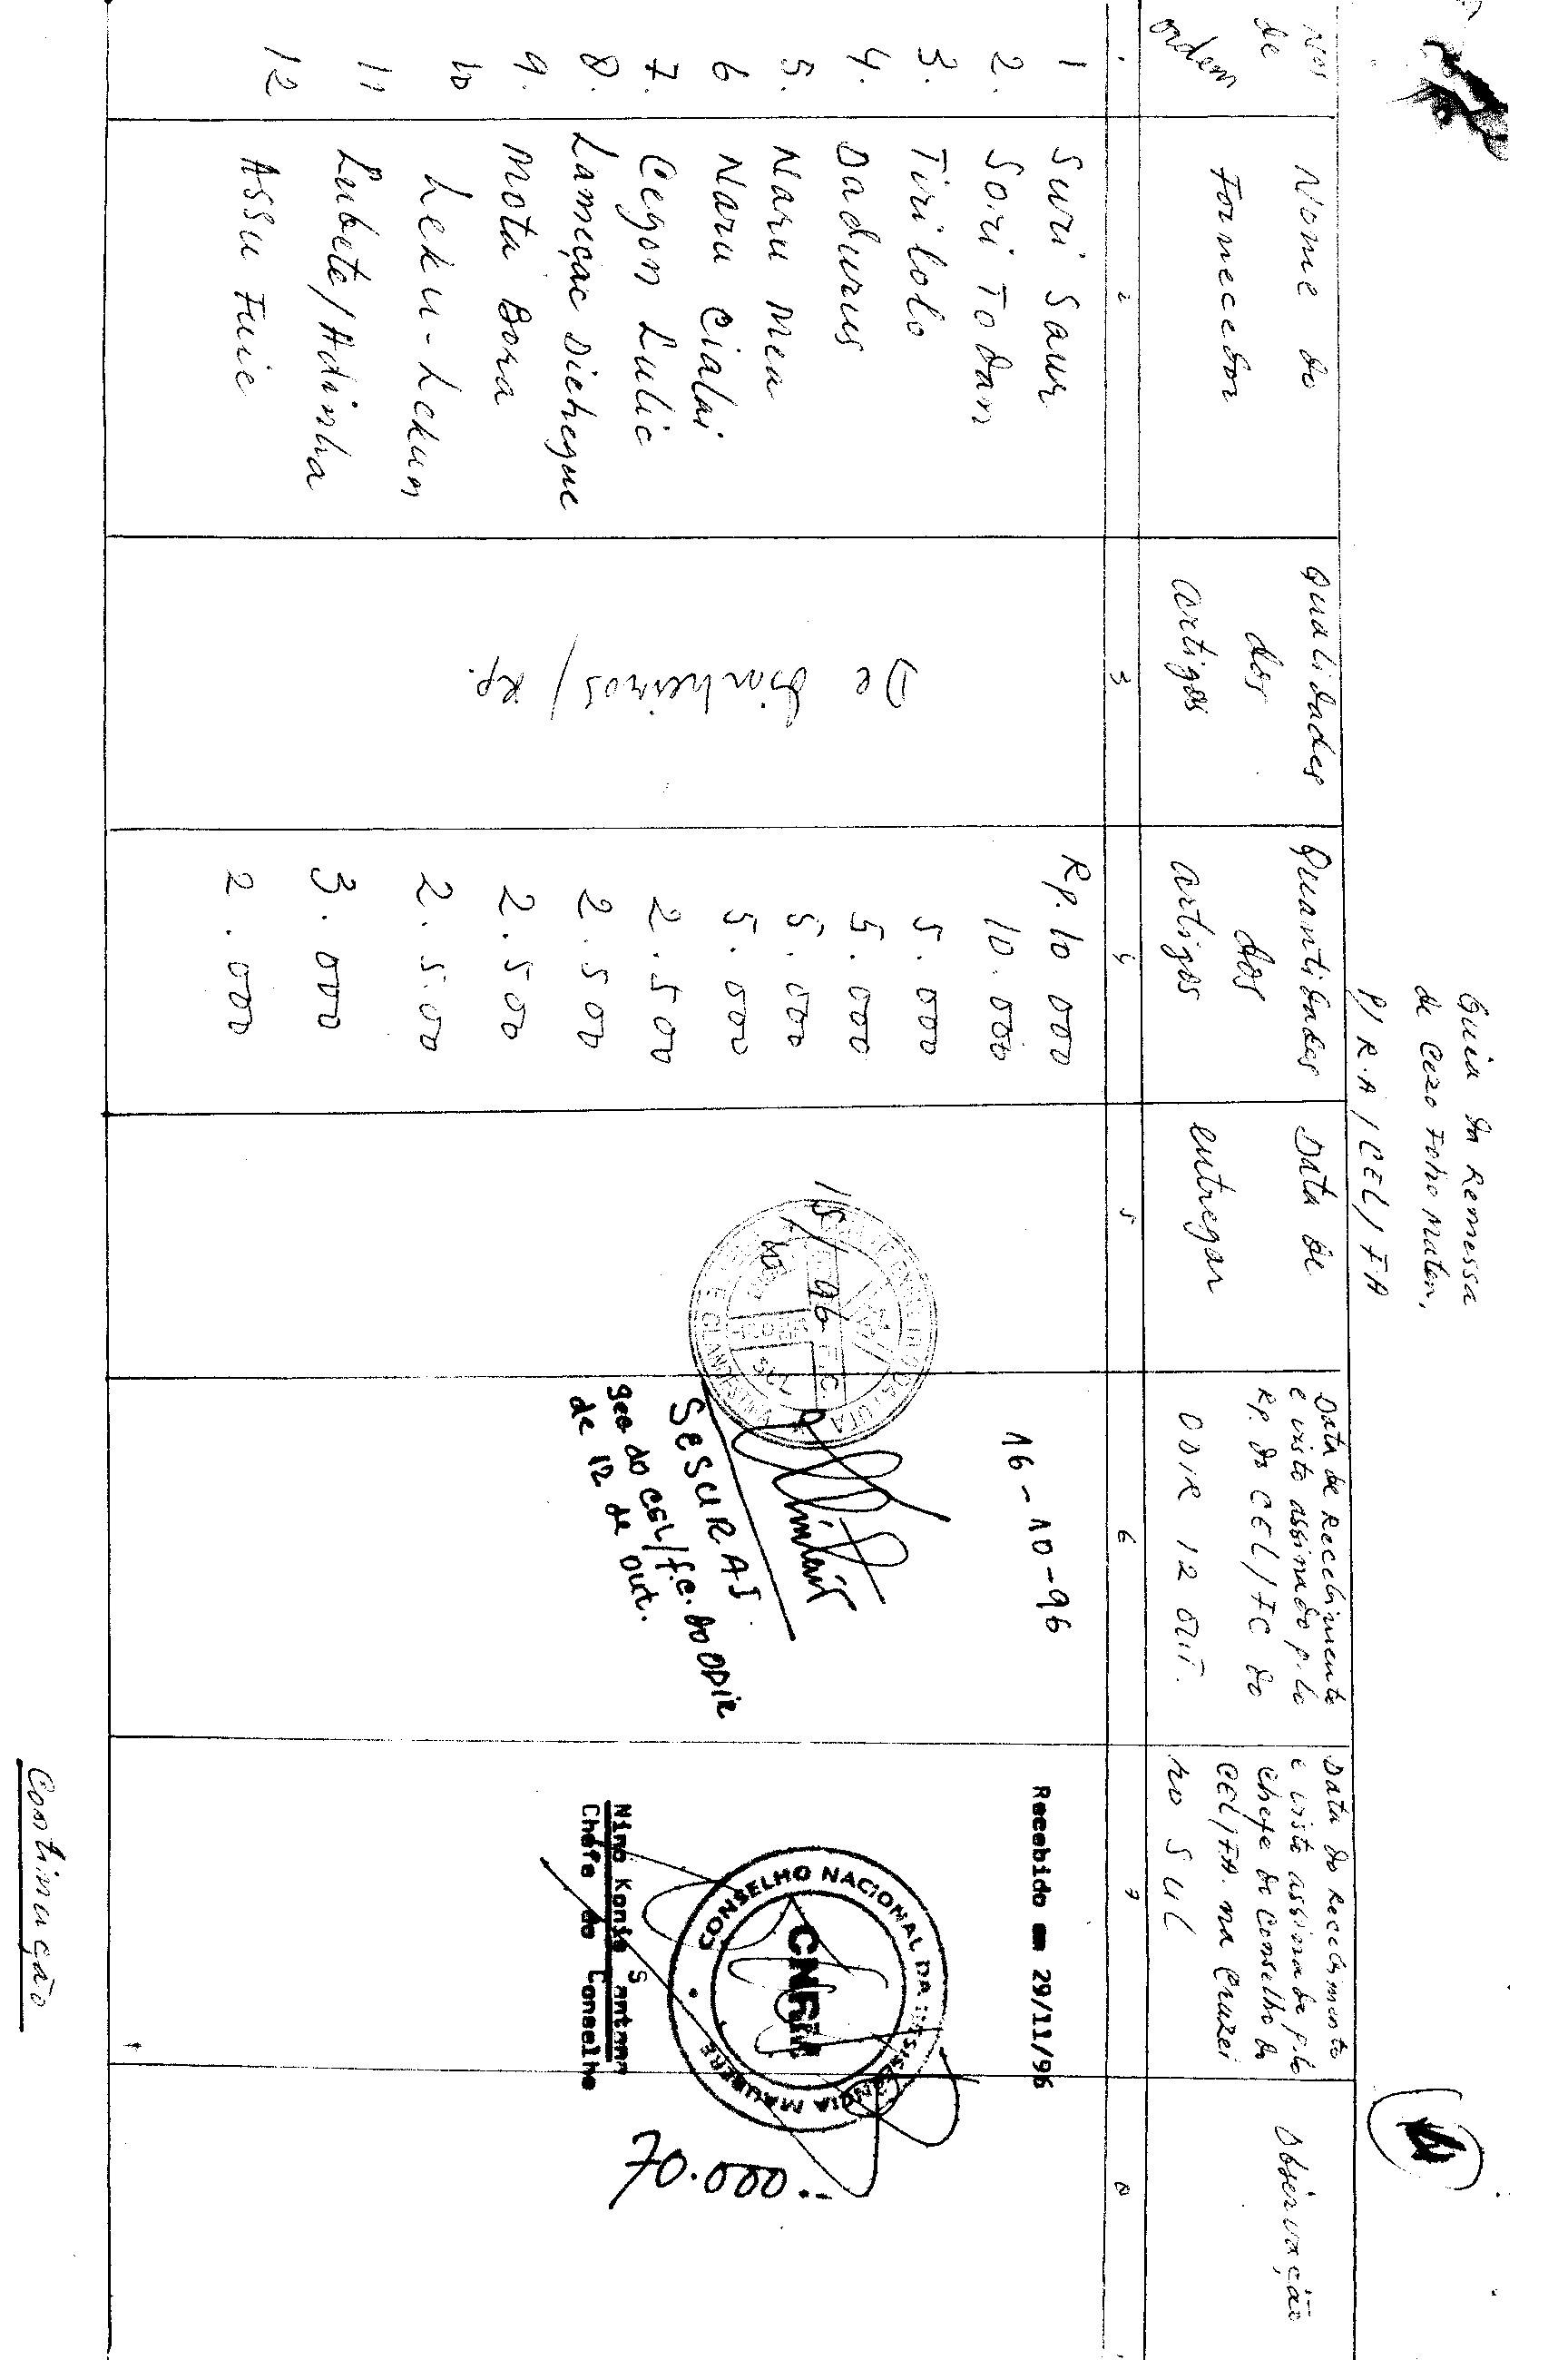 Guia da Remessa
de Cezo Foho Maten,
P/ R.A / CEL / FA
Nos de ordem
Nome do Fornecedor
Qualidades dos artigos
Quantidades dos artigos
Data de entregar
Data de Recebimento e visto assinado p-lo Rp. do CEL / FC do ODIR 12 OUT.
Data do Recebimento e visto assinado p-lo Chefe de Conselho do CEL/FA. na Cruzei ro SUL
Observação
1 2 3 4 5 6 7 8
1 Suri Saur Rp. 10 000
2. Sori Todan 10.000
3. Tirilolo 5.000
4. Dadurus 5.000
5. Naru Mea 5.000
6 Naru Cialai 5.000
7. Cegon Lulic 2.500
8. Lameçac Diehegue 2.500
9. Mota Bora 2.500
10 Leku-Lekum 2.500
11 Lubete/Adinha 3.000
12 Assu Fuic 2.000
De dinheiros / Rp.
15/10/96
16-10-96
SESURAI
Sec do CEL/F.C. do ODIR
de 12 de out.
Recebido em 29/11/96
CONSELHO NACIONAL DA RESISTÊNCIA MAUBERE
CNRM
Nino Konis Santana
Chefe do Conselho
70.000
Continuação